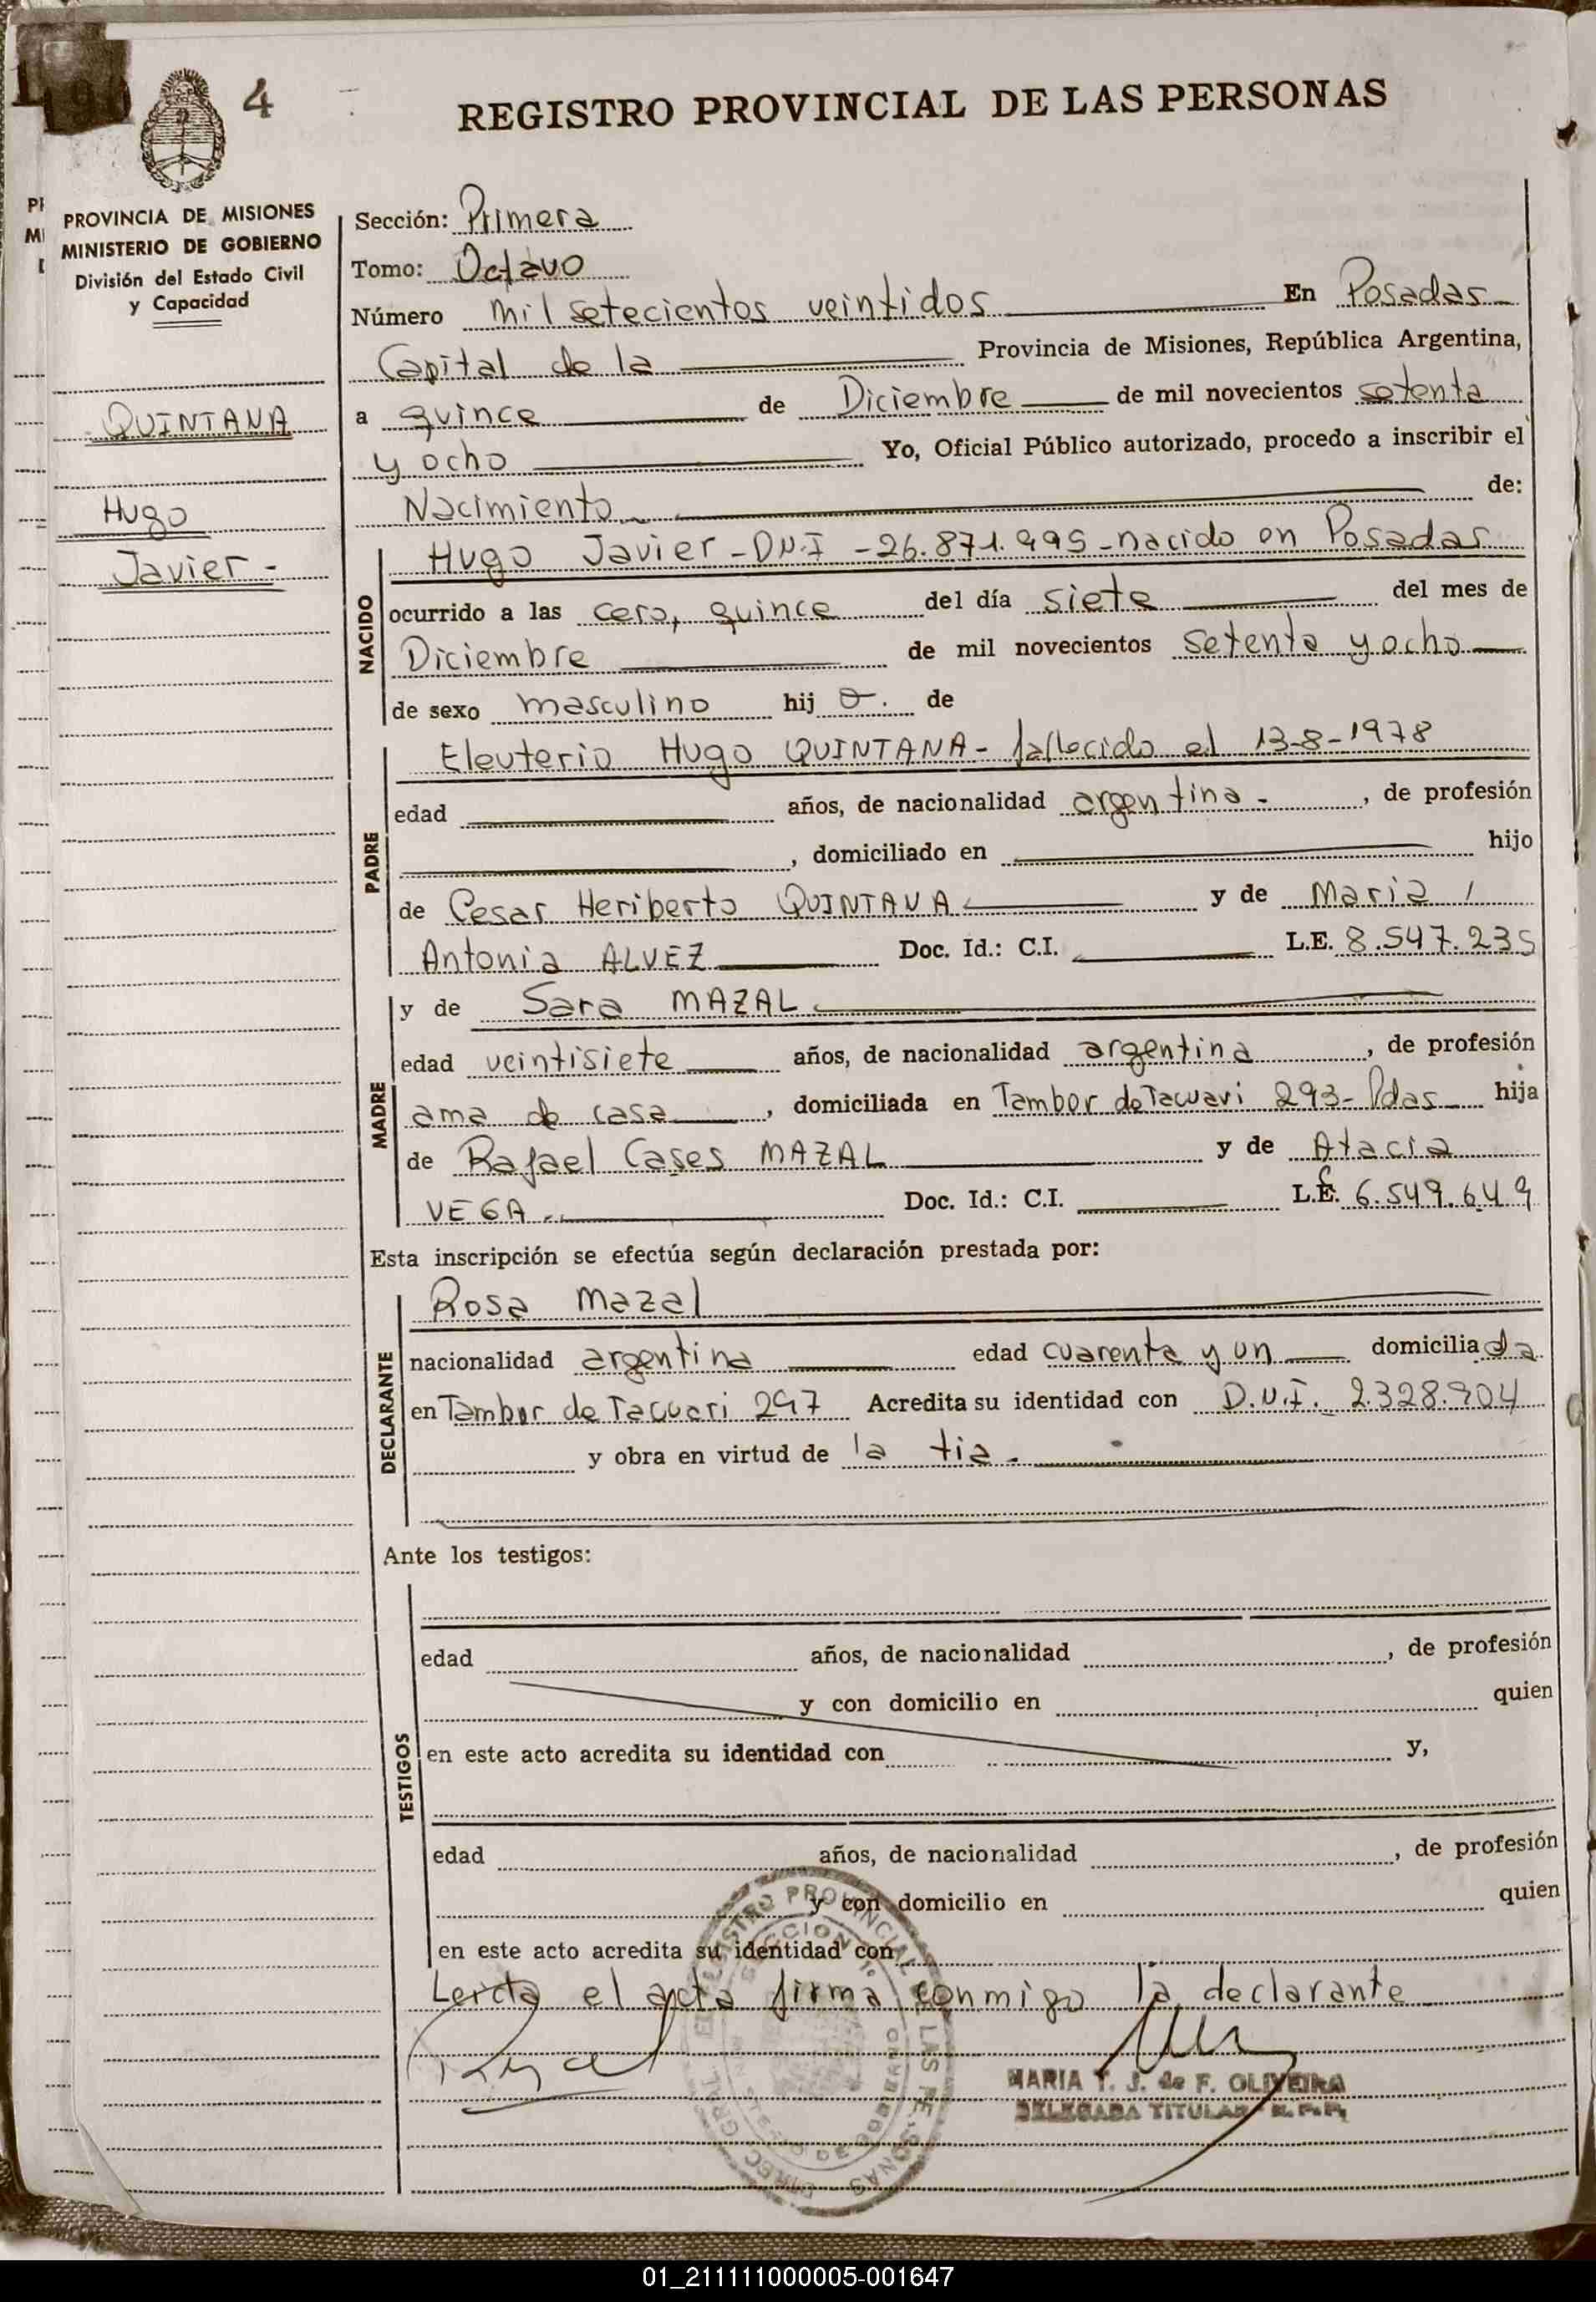 4
REGISTRO PROVINCIAL DE LAS PERSONAS
PROVINCIA DE MISIONES
MINISTERIO DE GOBIERNO
División del Estado Civil
y Capacidad
QUINTANA
Hugo
Javier -
Sección: Primera
Tomo: Octavo
Número mil setecientos veintidos En Posadas
Capital de la Provincia de Misiones, República Argentina,
a quince de Diciembre de mil novecientos setenta
y ocho Yo, Oficial Público autorizado, procedo a inscribir el
Nacimiento de:
NACIDO
Hugo Javier - DNI - 26.871.995 - nacido en Posadas
ocurrido a las cero, quince del día siete del mes de
Diciembre de mil novecientos setenta y ocho
de sexo masculino hij o. de
PADRE
Eleuterio Hugo QUINTANA - fallecido el 13-8-1978
edad años, de nacionalidad argentina - , de profesión
, domiciliado en hijo
de Cesar Heriberto QUINTANA y de Maria /
Antonia ALVEZ Doc. Id.: C.I. L.E. 8.547.235
MADRE
y de Sara MAZAL
edad veintisiete años, de nacionalidad argentina , de profesión
ama de casa , domiciliada en Tambor de Tacuari 293 - Pdas hija
de Rafael Cases MAZAL y de Atacia
VEGA Doc. Id.: C.I. L.C. 6.549.649
Esta inscripción se efectúa según declaración prestada por:
DECLARANTE
Rosa Mazal
nacionalidad argentina edad cuarenta y un domicilia da
en Tambor de Tacuari 297 Acredita su identidad con D.N.I. 2.328.904
y obra en virtud de la tia -
Ante los testigos:
TESTIGOS
edad años, de nacionalidad , de profesión
y con domicilio en quien
en este acto acredita su identidad con y,
edad años, de nacionalidad , de profesión
y con domicilio en quien
en este acto acredita su identidad con
Leida el acta firma conmigo la declarante
MARIA T. J. de F. OLIVEIRA
DELEGADA TITULAR R. P. P.
01_211111000005-001647